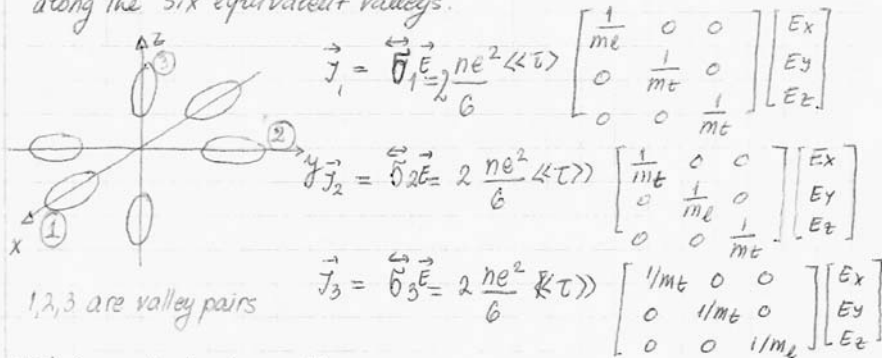 along the six equivalent valleys.
z
③
②
y
x
①
1,2,3 are valley pairs
J⃗₁ = σ⃡₁E⃗ = 2 ne²/6 <<τ>> [1/mℓ 0 0; 0 1/mt 0; 0 0 1/mt] [Ex; Ey; Ez]
J⃗₂ = σ⃡₂E⃗ = 2 ne²/6 <<τ>> [1/mt 0 0; 0 1/mℓ 0; 0 0 1/mt] [Ex; Ey; Ez]
J⃗₃ = σ⃡₃E⃗ = 2 ne²/6 <<τ>> [1/mt 0 0; 0 1/mt 0; 0 0 1/mℓ] [Ex; Ey; Ez]